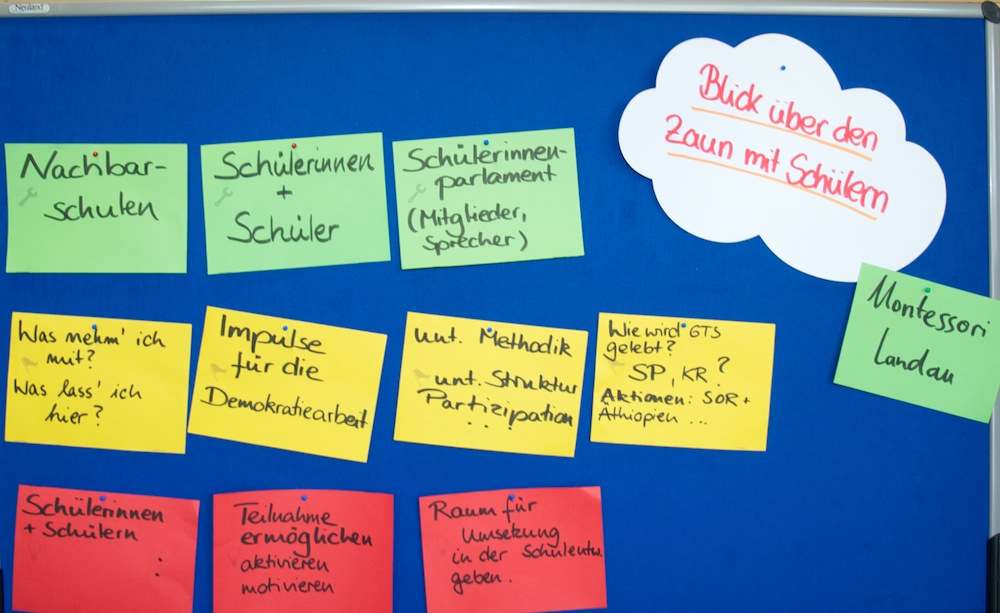 Neuland
Blick über den
Zaun mit Schülern
Nachbar-
schulen
Schülerinnen
+
Schüler
Schülerinnen-
parlament
(Mitglieder,
Sprecher)
Montessori
Landau
Was nehm' ich
mit?
Was lass' ich
hier?
Impulse
für die
Demokratiearbeit
unt. Methodik
unt. Struktur
Partizipation
...
Wie wird GTS
gelebt?
SP, KR?
Aktionen: SOR +
Äthiopien ...
Schülerinnen
+ Schülern
:
Teilnahme
ermöglichen
aktivieren
motivieren
Raum für
Umsetzung
in der Schulentw.
geben.